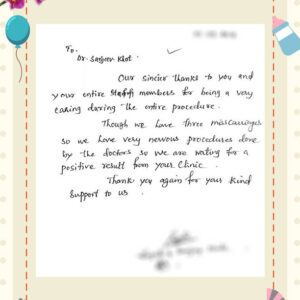 To,
Dr. Sanjeev Khot.
Our sincier thanks to you and
your entire Staff members for being a very
caring during the entire procedure.
Though we have three miscarriages
so we have very nervous procedures done
by the doctors so we are waiting for a
positive result from your Clinic.
Thank you again for your kind
Support to us.